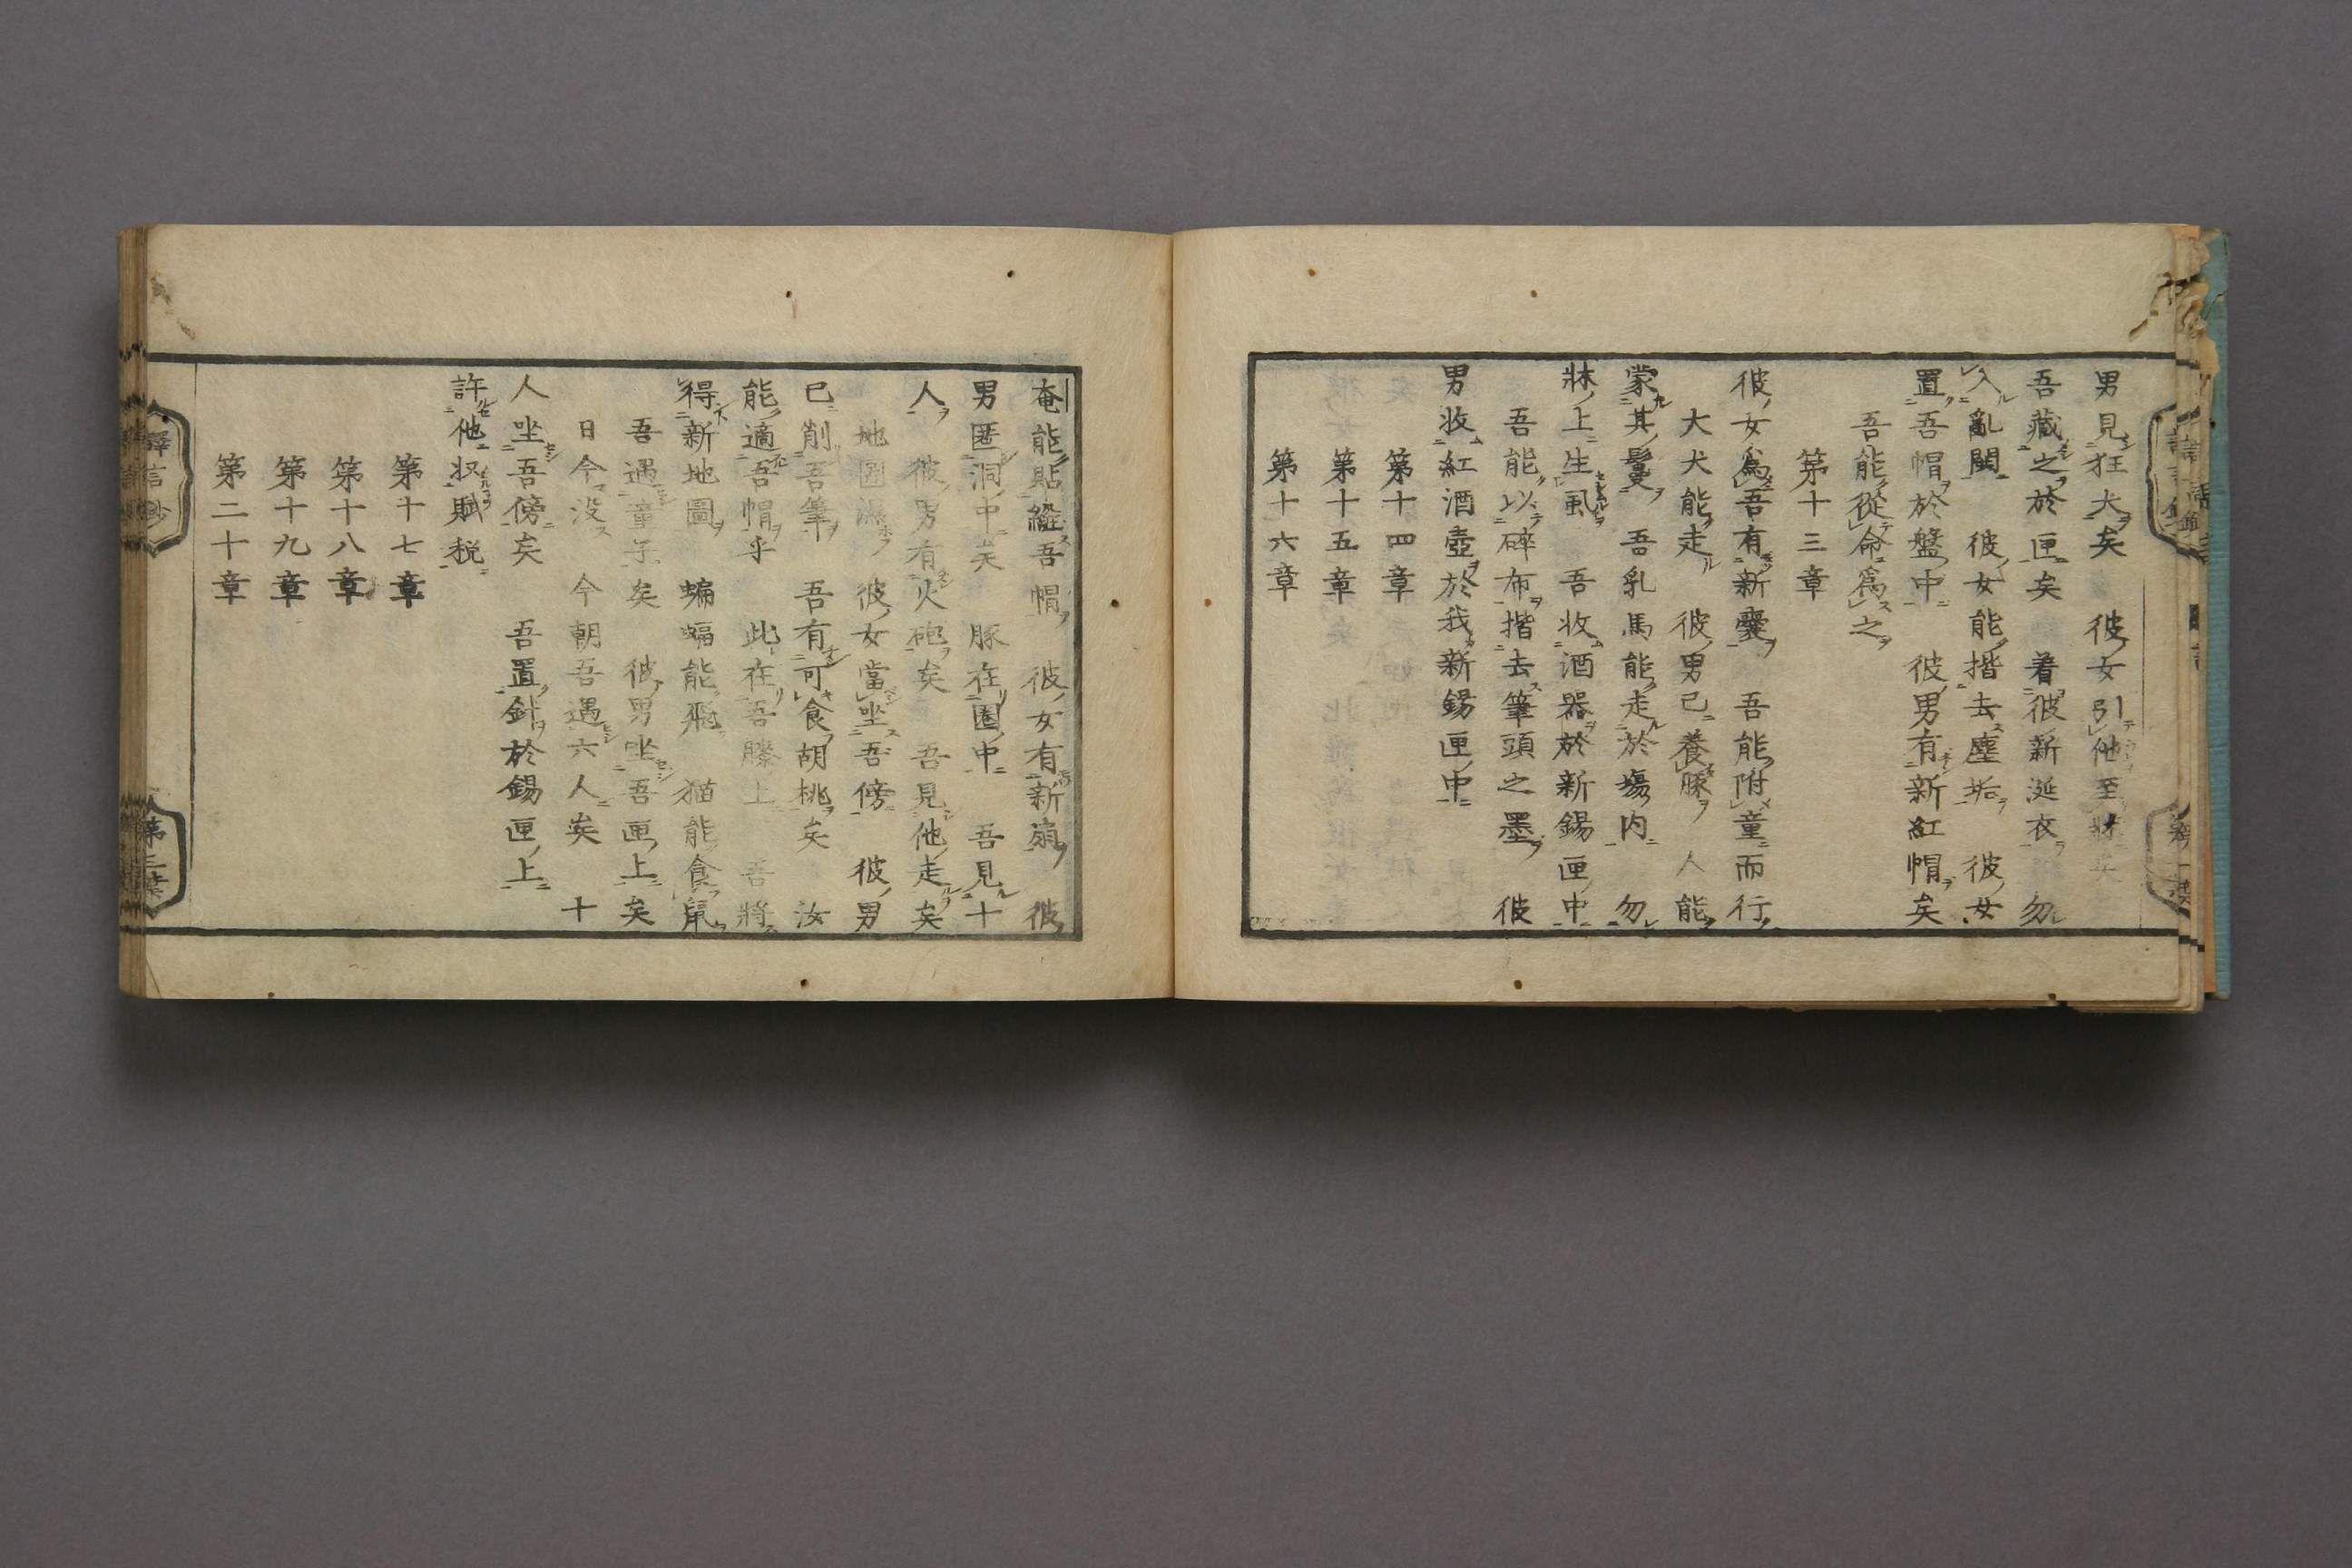 男見狂犬矣　彼女引他至牀矣
吾藏之於匣矣　着彼新涎衣　勿
入亂鬨　彼女能揩去塵垢　彼女
置吾帽於盤中　彼男有新紅帽矣
吾能從命爲之
第十三章
彼女爲吾有新囊　吾能附童而行
大犬能走　彼男已養豚　人能
蒙其鬘　吾乳馬能走於塲内　勿
牀上生虱　吾收酒器於新錫匣中
吾能以碎布揩去筆頭之墨　彼
男收紅酒壺於我新錫匣中
第十四章
第十五章
第十六章
奄能貼縫吾帽　彼女有新扇　彼
男匿洞中矣　豚在圏中　吾見十
人　彼男有火砲矣　吾見他走矣
地圖濕　彼女當坐吾傍　彼男
已削吾筆　吾有可食胡桃矣　汝
能適吾帽乎　此在吾膝上　吾將
得新地圖　蝙蝠能飛　猫能食鼠
吾遇童子矣　彼男坐吾匣上矣
日今没　今朝吾遇六人矣　十
人坐吾傍矣　吾置針於錫匣上
許他収賦税
第十七章
第十八章
第十九章
第二十章
譯言鈔
第三葉